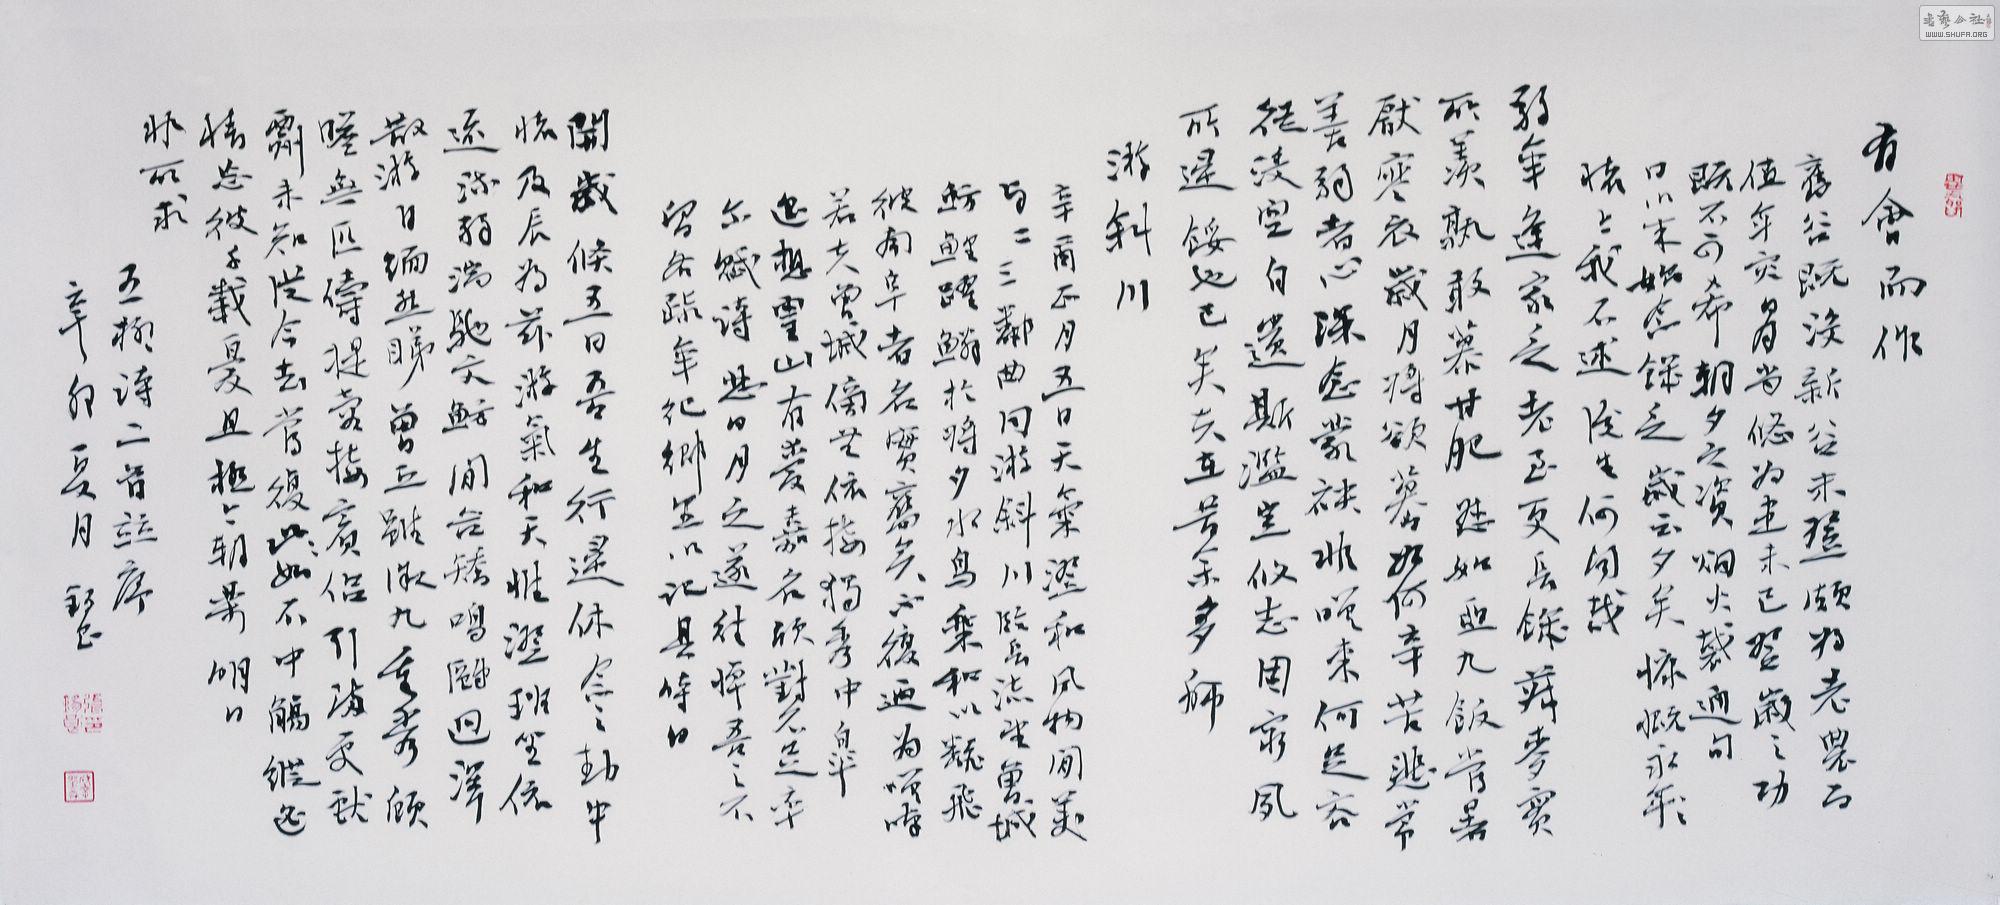 有會而作
舊谷既没新谷未登頗為老農而
值年灾日月尚悠為患未已登歲之功
既不可希朝夕之资烟火裁通旬
日以来始念飢乏歲云夕矣慷慨永
懷今我不述後生何聞哉
弱年逢家乏老至更長飢菽麥實
所羡孰敢慕甘肥惄如亞九飯當暑
厭寒衣歲月將欲暮如何辛苦悲常
善粥者心深念蒙袂非嗟来何足吝
徒没空自遺斯濫豈攸志固窮夙
所歸餒也已矣夫在昔余多師
游斜川
辛酉正月五日天氣澄和風物閒美
与二三鄰曲同游斜川臨長流望曾城
魴鯉躍鱗於將夕水鳥乘和以翻飛
彼南阜者名實舊矣不復迺為嗟嘆
若夫曾城傍無依接獨秀中皋
遥想靈山有愛嘉名欣對不足率
尔赋詩悲日月之遂往悼吾之不
留各疏年纪鄉里以记其時日
開歲倏五日吾生行歸休念之動中
懷及辰為兹游氣和天惟澄班坐依
遠流弱湍馳文魴閒谷矯鳴鷗迥澤
散游目緬然睇曾丘雖微九重秀顧
瞻無匹儔提壺接賓侣引滿更獻
酬未知從今去當復如此不中觴縱遥
情忘彼千載憂且極今朝樂明日
非所求
五柳詩二首並序
辛卯夏月
書藝公社
WWW.SHUFA.ORG